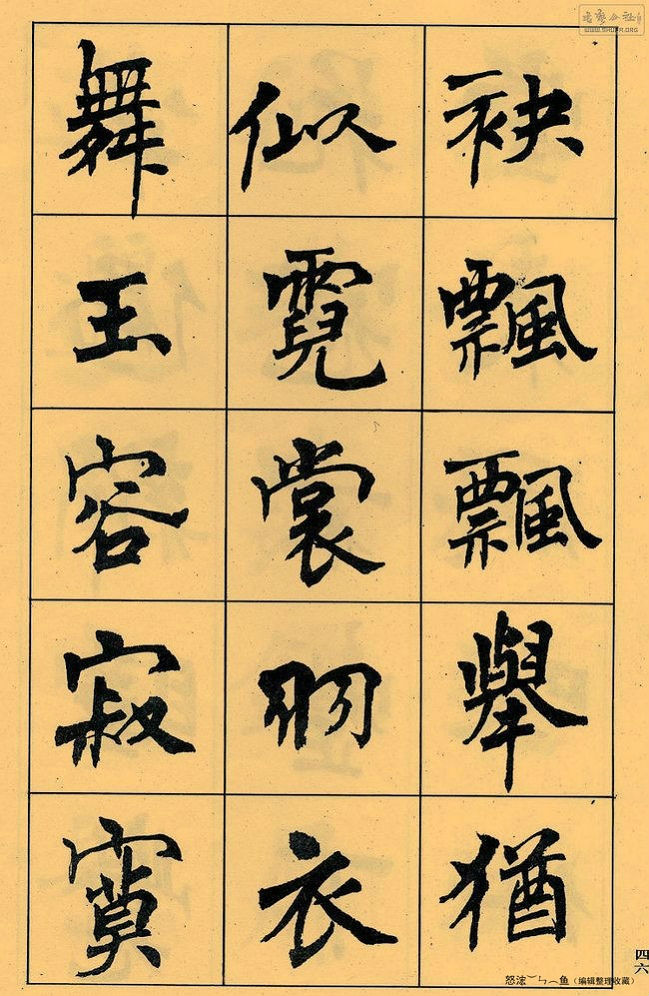 袂飄飄舉猶
似霓裳羽衣
舞玉容寂寞
四六
WWW.SHUFR.ORG
(编辑整理收藏)